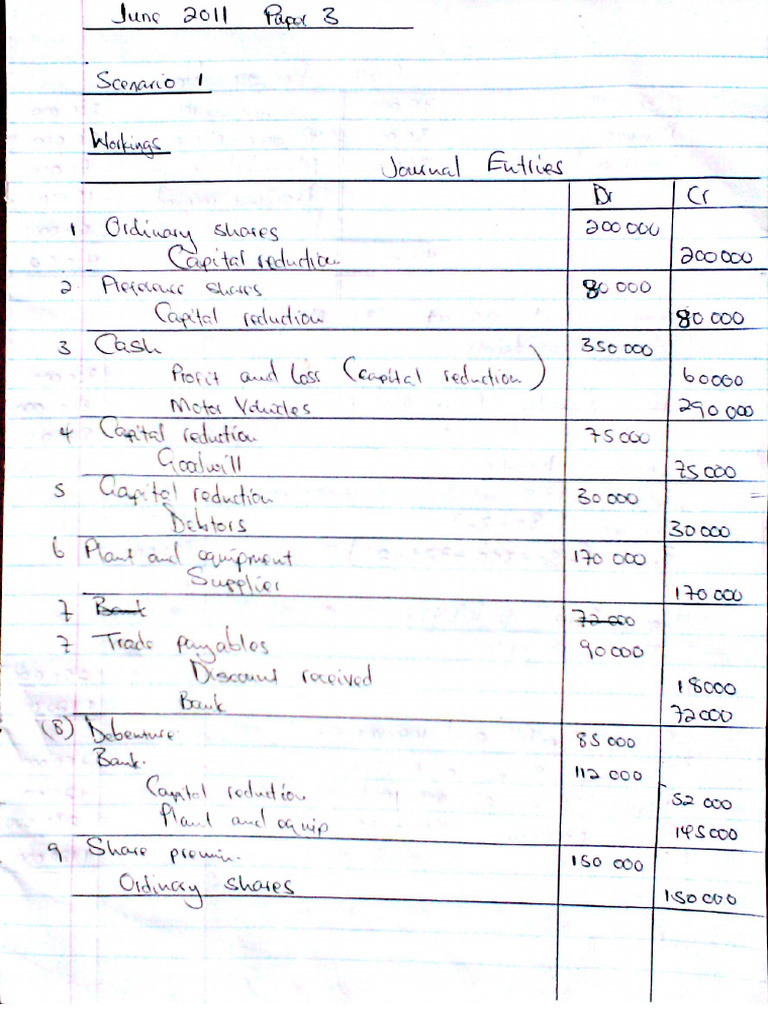 June 2011 Paper 3
Scenario 1
Workings
Journal Entries
Dr Cr
1 Ordinary shares 200 000
Capital reduction 200 000
2 Preference shares 80 000
Capital reduction 80 000
3 Cash 350 000
Profit and Loss (capital reduction) 60000
Motor Vehicles 290 000
4 Capital reduction 75 000
Goodwill 75 000
5 Capital reduction 30 000
Debtors 30 000
6 Plant and equipment 170 000
Supplier 170 000
7 Bank 72 000
7 Trade payables 90 000
Discount received 18000
Bank 72000
(8) Debenture 85 000
Bank. 112 000
Capital reduction 52 000
Plant and equip 145000
9 Share premium. 150 000
Ordinary shares 150 000